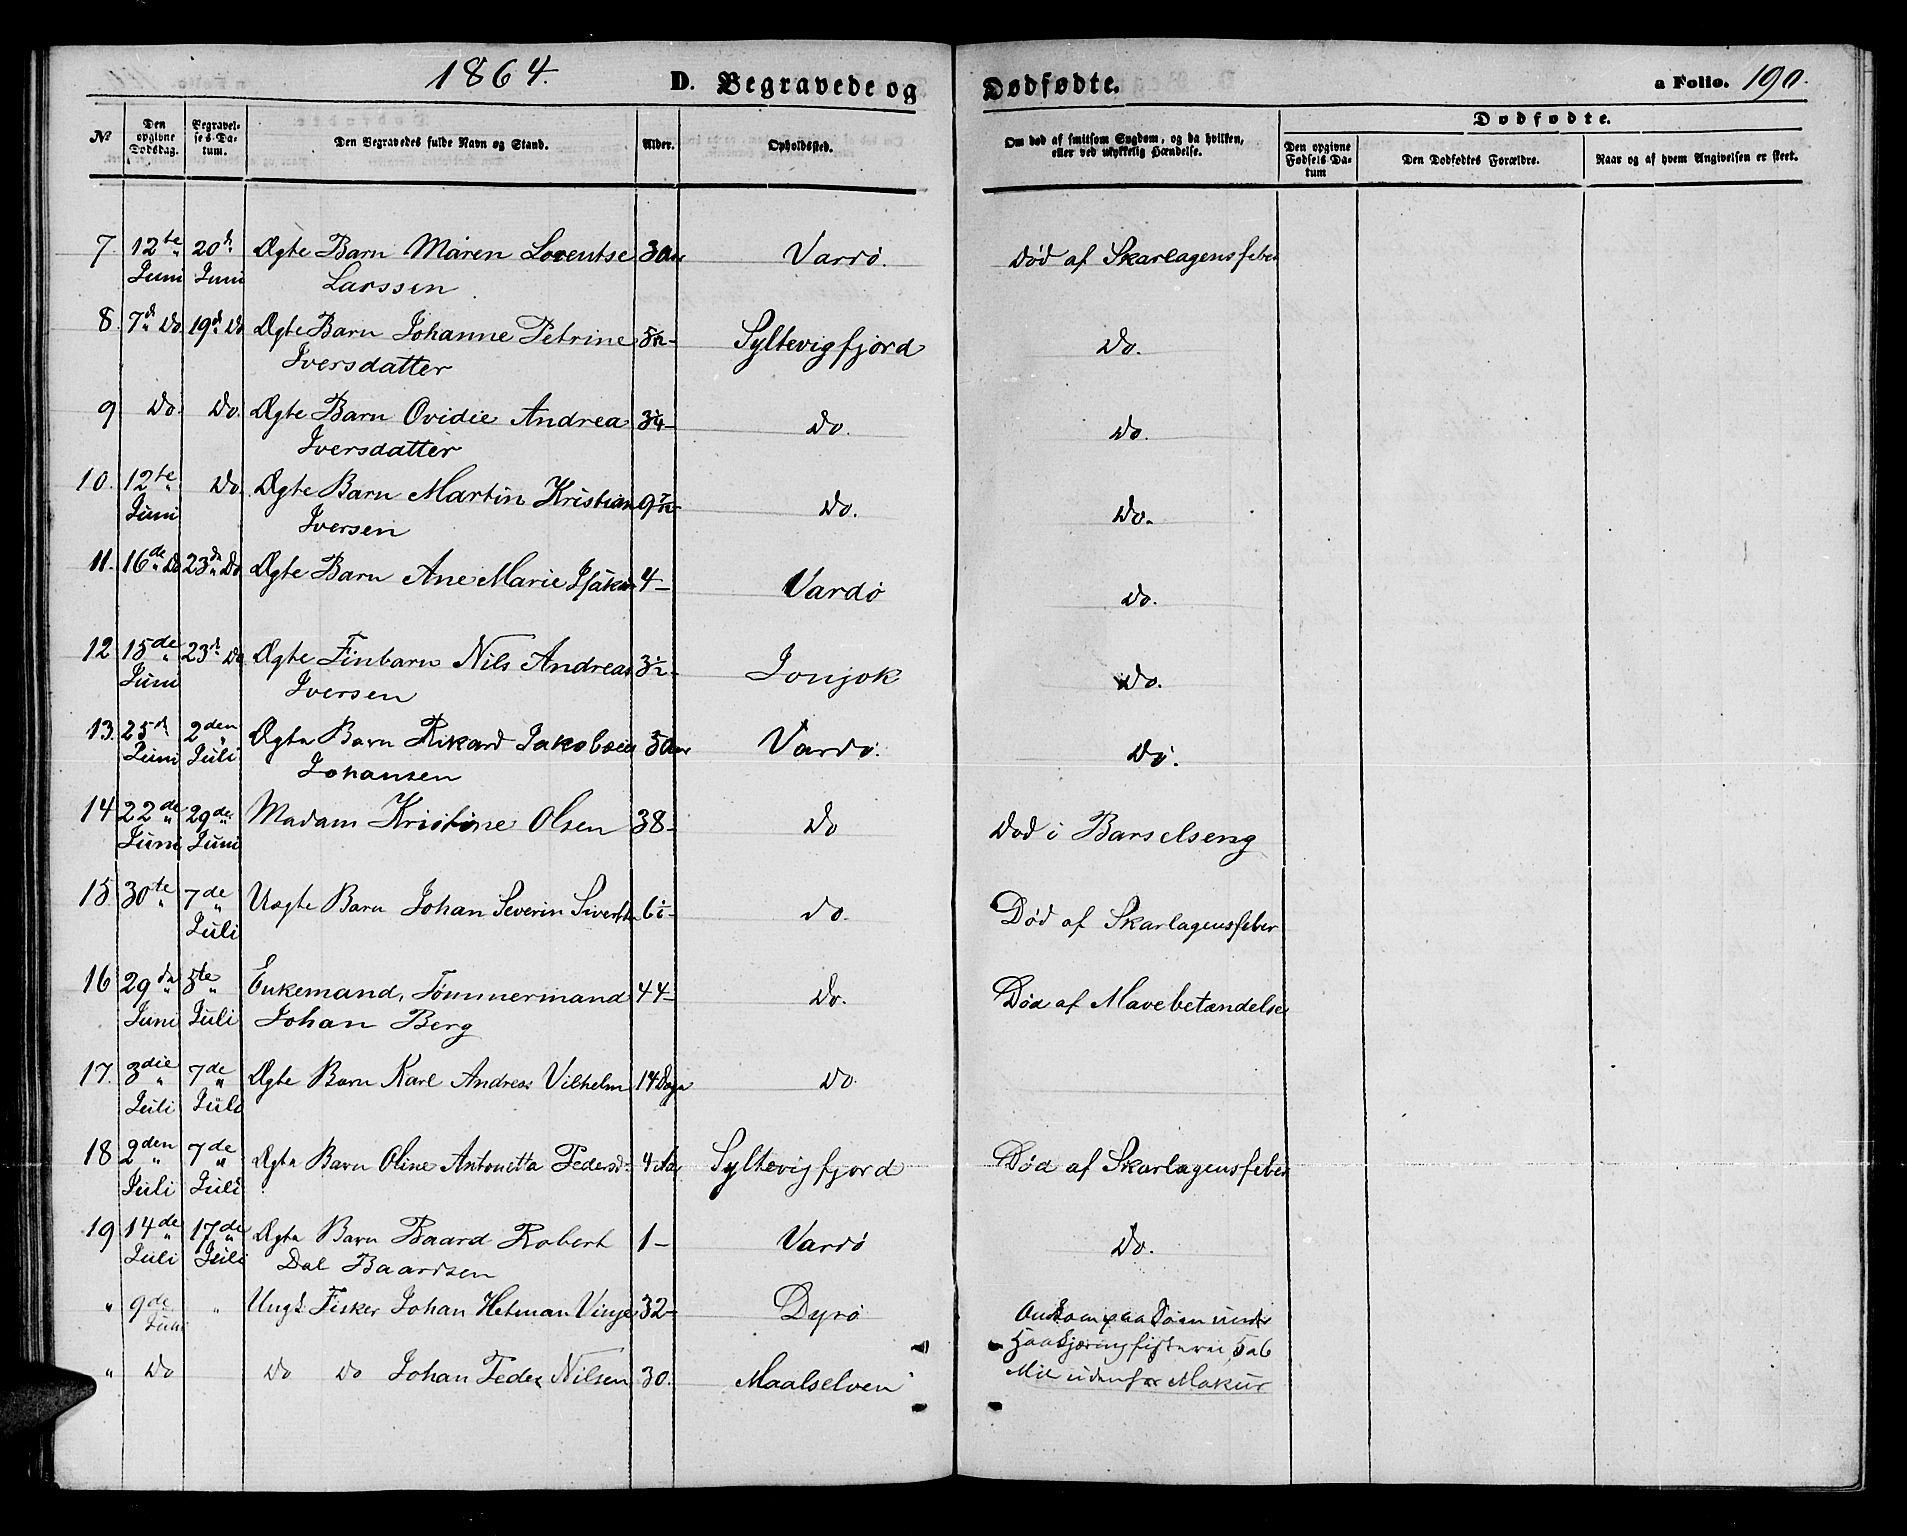 1864.
D. Begravede og
Dødfødte.
a Folio. 190.
№
Den opgivne Dødsdag.
Begravelses-Datum.
Den Begravedes fulde Navn og Stand.
Alder.
Opholdssted.
Om død af smitsom Sygdom, og da hvilken, eller ved ulykkelig Hændelse.
Dødfødte.
Den opgivne Fødsels Datum
Den Dødfødtes Forældre.
Naar og af hvem Angivelsen er skeet.
7. 12te 20d Ægte Barn Maren Lorentse 3 Aar Vardø. Død af Skarlagensfeber
Juni Juni Larssen
8. 7d Do 19d Do Ægte Barn Johanne Petrine Syltevigfjord Do.
Iversdatter
9 Do. Do. Ægte Barn Ovidie Andrea Do. Do.
Iversdatter
10. 12te Do. Ægte Barn Martin Kristian Do. Do.
Juni Iversen
11. 16de Do 23de Do Ægte Barn Ane Marie 4- Vardø Do.
12 15de 23d Do Ægte Finbarn Nils Andreas 3½- Do.
Juni Iversen
13. 25d 2den Ægte Barn Rikard Jakob Vardø. Do.
Juni Juli Johansen
14 22de 29de Madam Kristine Olsen 38- Do Død i Barselseng
Juni Juni
15 30te 7de Uægte Barn Johan Severin Do. Død af Skarlagensfeber
Juli
16 29de 5te Enkemand, Tømmermand 44- Do. Død af Mavebetændelse
Juni Juli Johan Berg
17. 3die 7de Ægte Barn Karl Andreas Vilhelm 14 Dage Do
Juli Juli
18 2den 7de Ægte Barn Oline Antonetta Pedersd: 4 Aar Syltevigfjord Død af Skarlagensfeber
Juli Juli
19 14de 17de Ægte Barn Baard Robert 1- Vardø Do.
Juli Juli Dal Baardsen
" 9de " Ungk. Fisker Johan Hetman Vinje 32- Dyrø Omkom paa Søen under
Juni Haakjæringfisteriet, 5 a 6
" Do Do Do Johan Peder Nilsen 30. Maalselven Mil udenfor Makur